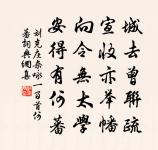 城去曾聯疏
宣收亦舉幡
向令無太學
安得有何蕃
劉克莊雜詠一百首何
蕃詞典網